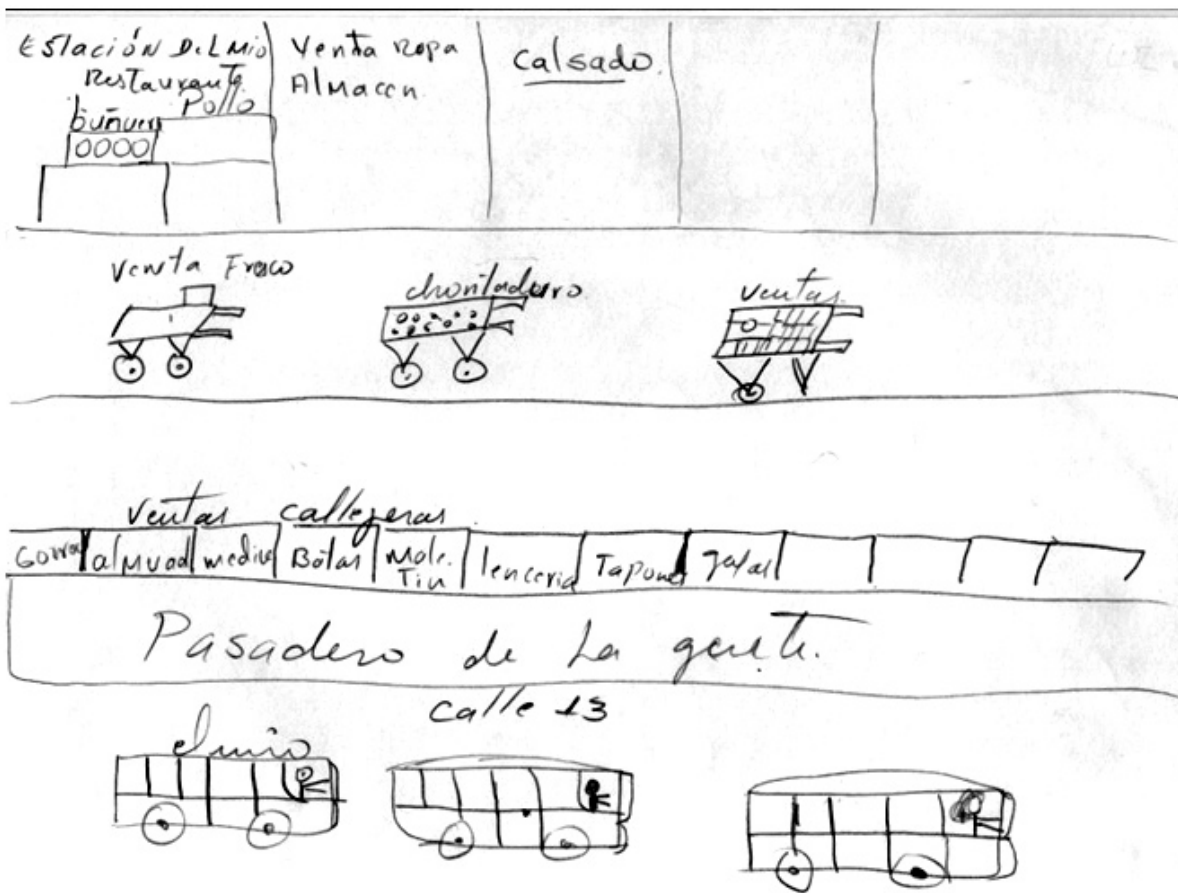 Estación Del Mio
Restaurante
Pollo
buñuero
Venta Ropa
Almacen
Calsado.
Venta Fresco
chontaduro
ventas
Ventas callejeras
Gorra almuad media Botas Male. Tin lenceria Tapones gafas
Pasadero de La gente.
calle 13
el mio